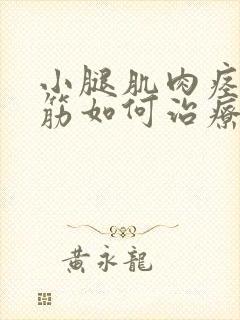 小腿肌肉痉
筋如何治療
黄永龍